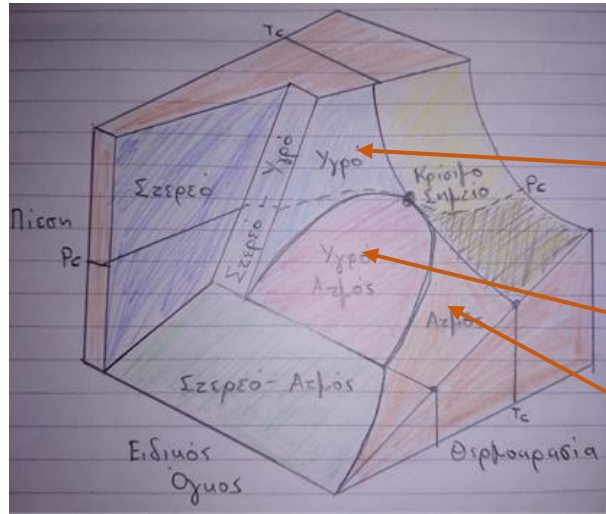 Tc
Στερεό
Υγρό
Στερεό
Υγρό
Κρίσιμο
Σημείο
Pc
Πίεση
Pc
Υγρό
Ατμός
Ατμός
Στερεό-Ατμός
Tc
Ειδικός
Όγκος
Θερμοκρασία